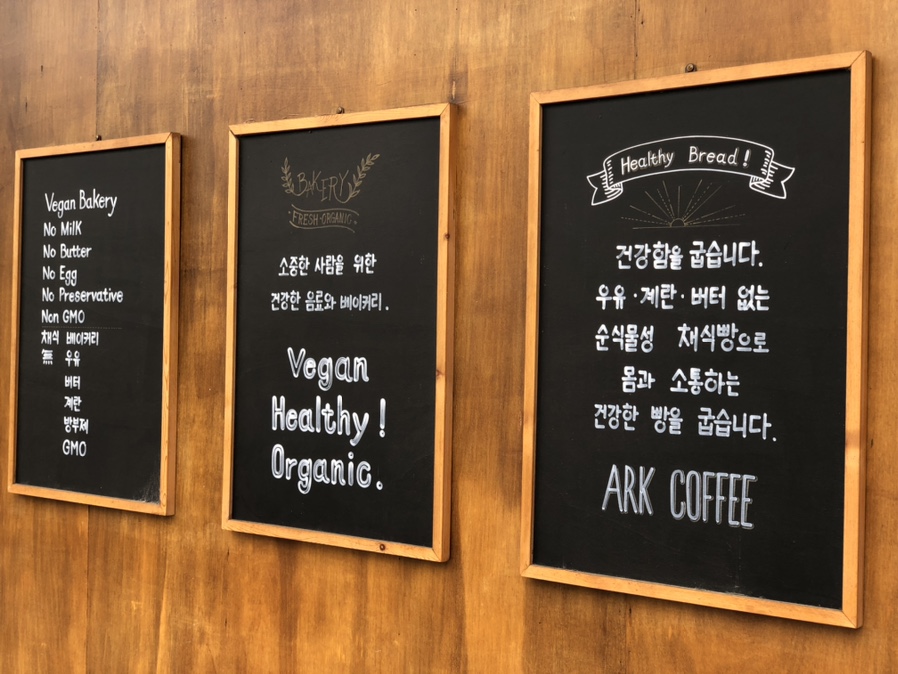 Vegan Bakery
No Milk
No Butter
No Egg
No Preservative
Non GMO
채식 베이커리
無 우유
버터
계란
방부제
GMO
BAKERY
FRESH·ORGANIC
소중한 사람을 위한
건강한 음료와 베이커리.
Vegan
Healthy!
Organic.
Healthy Bread!
건강함을 굽습니다.
우유·계란·버터 없는
순식물성 채식빵으로
몸과 소통하는
건강한 빵을 굽습니다.
ARK COFFEE